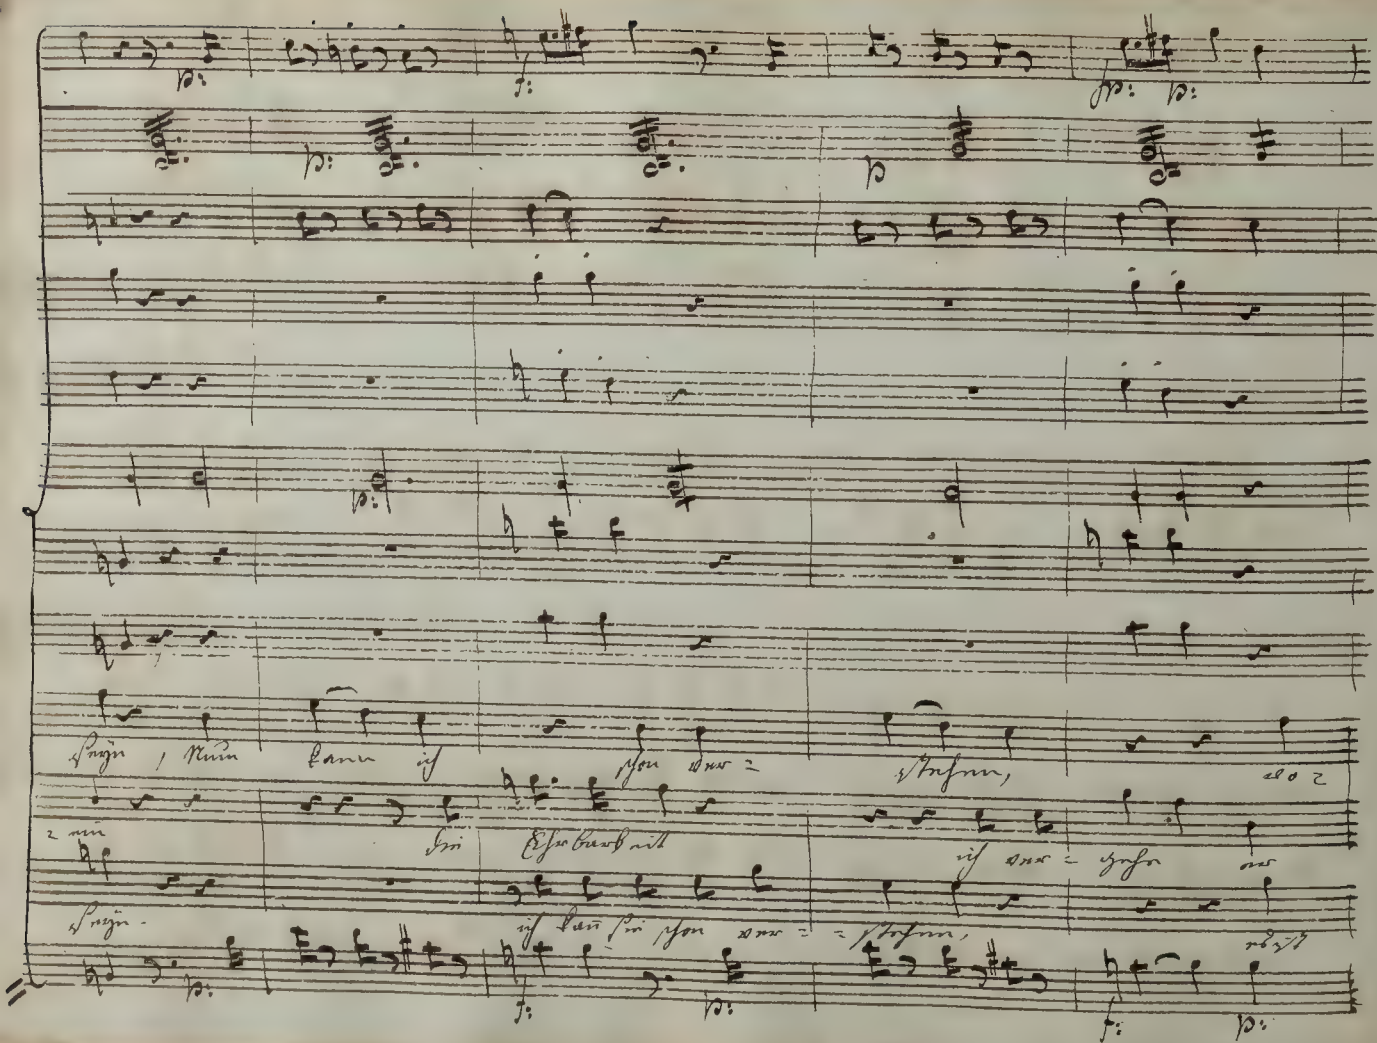 p: f: fp: p:
p: p
p:
seyn, Nun kann ich schon ver= stehen, wo=
=ein die Ehrbarkeit ich ver= gehe
seyn. ich kañ sie schon ver= =stehen,
p: f: p: f: p: